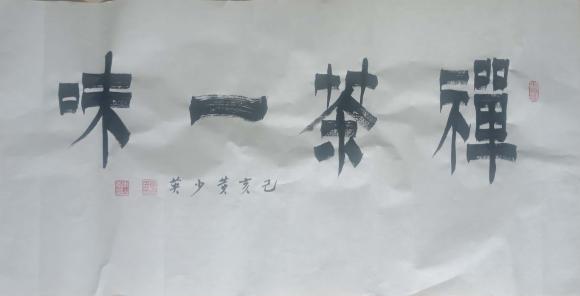 禪茶一味
己亥黄少英